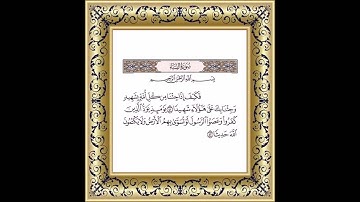 سورة النساء
بسم الله الرحمن الرحيم
فكيف إذا جئنا من كل أمة بشهيد
وجئنا بك على هؤلاء شهيدا ۝ يومئذ يود الذين
كفروا وعصوا الرسول لو تسوى بهم الأرض ولا يكتمون
الله حديثا ۝